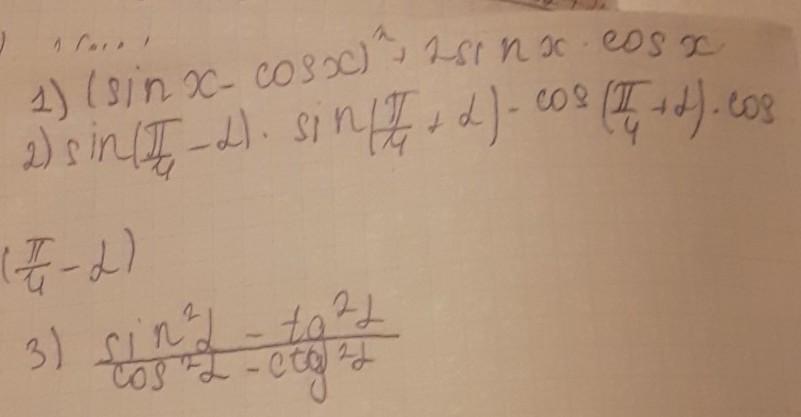 1) (sin x - cos x)² + 2 sin x · cos x
2) sin(π/4 - α) · sin(π/4 + α) - cos(π/4 + α) · cos
(π/4 - α)
3) sin²α - tg²α
cos²α - ctg²α